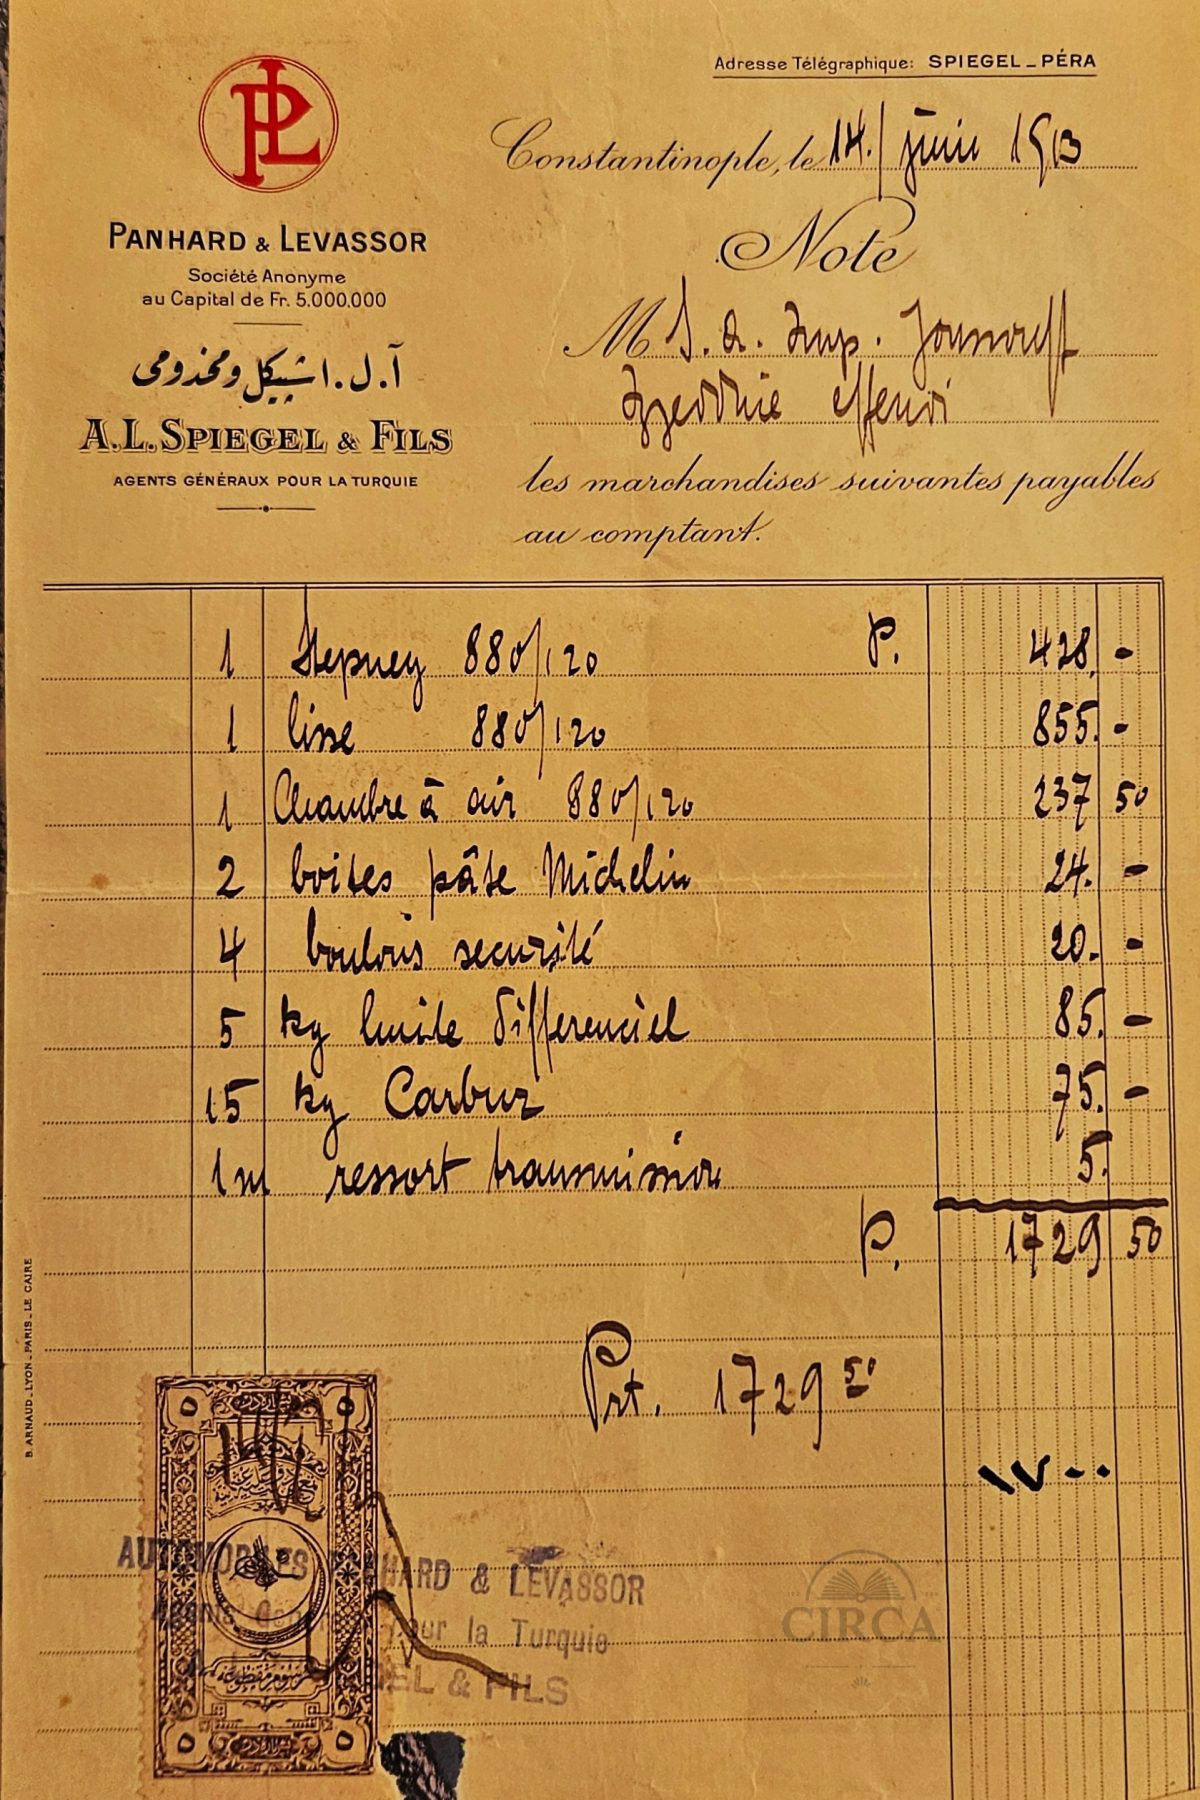 Adresse Télégraphique: SPIEGEL_PÉRA
PL
Constantinople, le 14./ juin 1913
PANHARD & LEVASSOR
Société Anonyme
au Capital de Fr. 5.000.000
Note
M S. A. Imp. Youssouff
Izzeddine effendi
آ. ل. اشپیکل و مخدومی
A.L. SPIEGEL & FILS
AGENTS GÉNÉRAUX POUR LA TURQUIE
les marchandises suivantes payables
au comptant.
1 Stepney 880/120 P. 428.-
1 lisse 880/120 855.-
1 Chambre à air 880/120 237 50
2 boites pâte Michelin 24.-
4 boulons securité 20.-
5 kg huile differenciel 85.-
15 kg Carbur 75.-
1 m ressort transmission 5.
P. 1729 50
Prt. 1729 50
١٧٠٠
B. ARNAUD_LYON_PARIS_LE CAIRE
٥ ٥
AUTOMOBILES PANHARD & LEVASSOR
pour la Turquie
& FILS
رسوم مقطوعه
٥ ٥
CIRCA